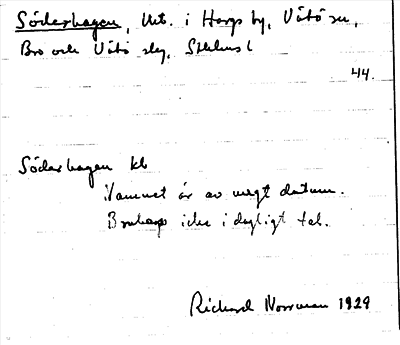 Söderhagen, Ht. i Harps by, Vätö sn,
Bro och Vätö slg, Sthlms l
44.
Söderhagen kb
Namnet är av ungt datum.
Brukas icke i dagligt tal.
Richard Norrman 1929